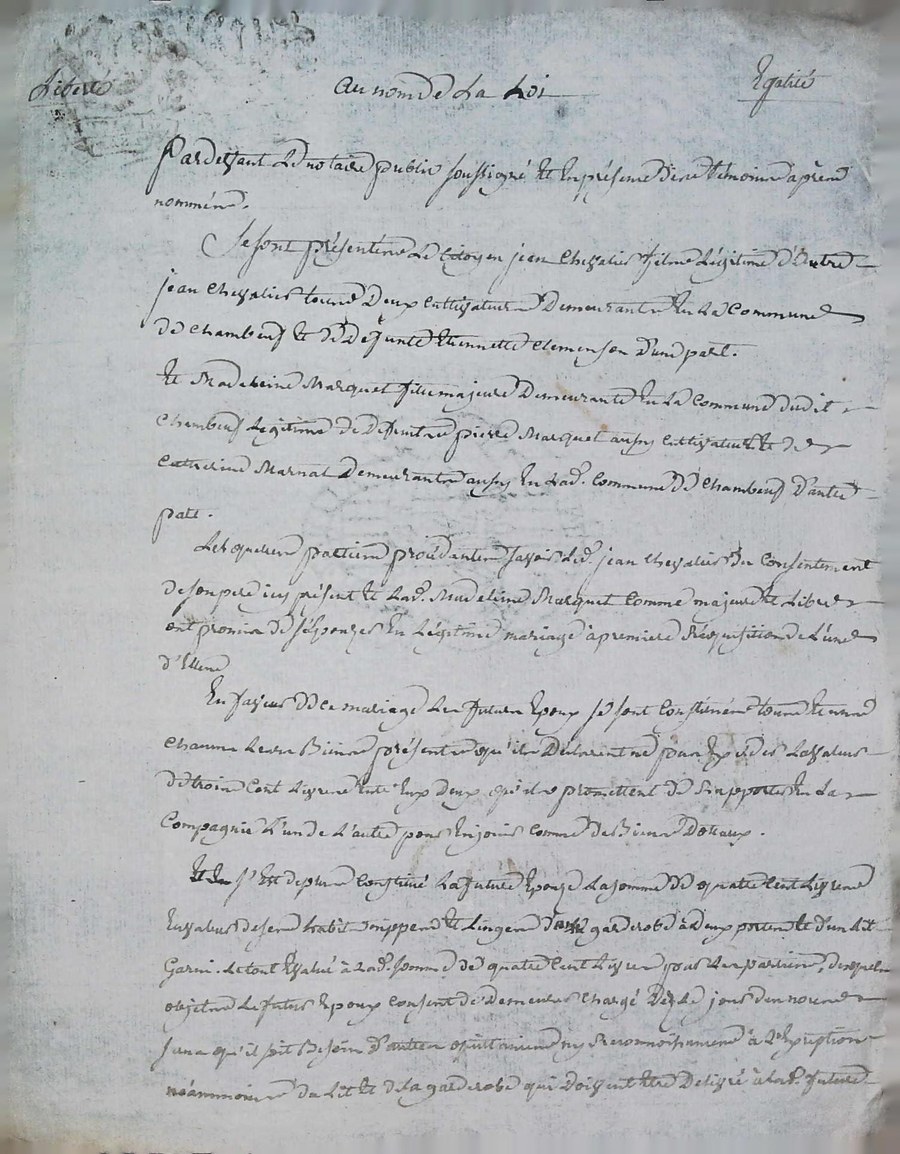 Liberté au nom de La Loi Egalité
Pardevant Le notaire public soussigné Et En présence des témoins après
nommés.
Se sont présentés Le Citoyen jean Chevalier fils Légitime d'Entre
jean Chevalier tous Deux Cultivateurs Demeurants En La Commune
de Chambeuf Et de Défunte Etiennette Clemenson d'une part.
Et Madeleine Marquet fille majeure Demeurante En La Commune dudit
Chambeuf Légitime de Défunt pierre Marquet aussy Cultivateur Et de
Catherine Marnat Demeurante aussy En Lad. Commune de Chambeuf d'autre
part.
Lesquelles parties procédantes savoir Led. jean Chevalier du Consentement
de son pere icy présent Et Lad. Madeleine Marquet Comme majeure Et Libre
ont promis de s'épouser En Légitime mariage à premiere Réquisition de L'une
d'Elles
En faveur de ce mariage Les futurs Epoux se sont Constitués tous Et uns
Chacuns Leurs Biens présents qu'ils Déclarent ne pas Excéder La valeur
de trois Cent Livres Entre Eux Deux qu'ils promettent de s'apporter En La
Compagnie L'un de L'autre pour En jouir Comme de Biens Dotaux.
S'Est de plus Constitué La future Epouse La somme de quatre Cent Livres
En valeur de ses habits nippes Et Linges garderobe à Deux portes Et d'un Lit
Garni. Le tout Evalué à Lad. somme de quatre Cent Livres par Les parties, desquels
objets Le futur Epoux Consent de Demeurer Chargé Dès Le jour des noces
sans qu'il soit Besoin d'autres quittances ny Reconnoissances à L'Exception
néanmoins du Lit Et de La garderobe qui Doivent Etre Délivré à Lad. future